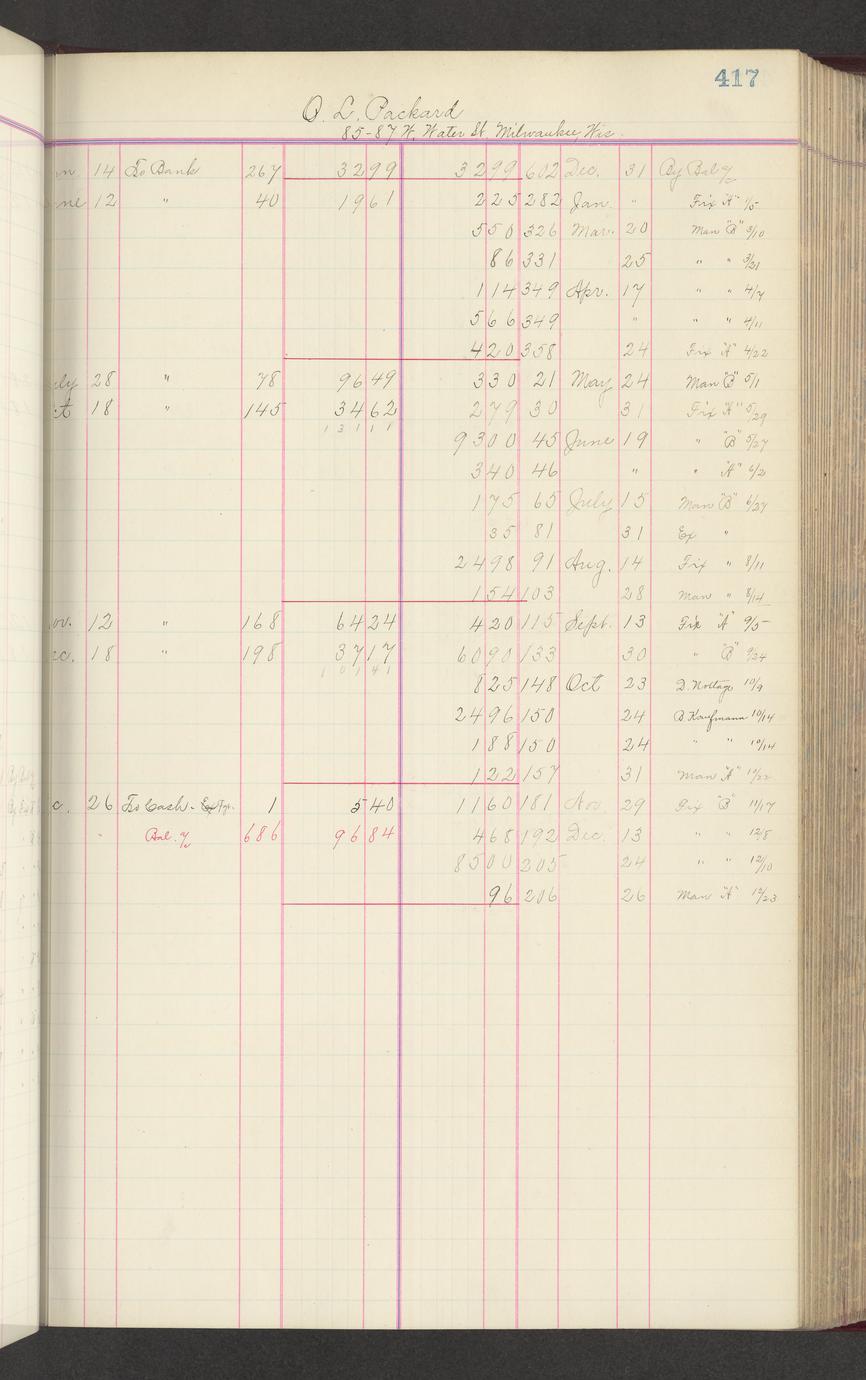 417
O. L. Packard
85-87 W. Water St. Milwaukee, Wis.
14 To Bank 267 3299 3299 602 Dec. 31 By Bal %
12 " 40 1961 225 282 Jan. " Fix "A" 1/5
550 326 Mar. 20 Man "B" 3/10
86 331 25 " " 3/21
114 349 Apr. 17 " " 4/7
566 349 " " " 4/11
420 358 24 Fix "A" 4/22
28 " 78 9649 330 21 May 24 Man "B" 5/1
18 " 145 3462 279 30 31 Fix "A" 5/29
13111
9300 45 June 19 " "B" 5/27
340 46 " " "A" 6/2
175 65 July 15 Man "B" 6/27
35 81 31 Ex "
2498 91 Aug. 14 Fix " 8/11
154 103 28 Man " 8/14
12 " 168 6424 420 115 Sept. 13 Fix "A" 9/5
18 " 198 3717 6090 133 30 " "B" 9/24
10141
825 148 Oct 23 D. Nottage 10/9
2496 150 24 B Kaufmann 10/14
188 150 24 " " 10/14
122 157 31 Man "A" 10/22
26 To Cash - 1 540 1160 181 Nov. 29 Fix "B" 11/17
" Bal. % 686 9684 468 192 Dec. 13 " " 12/8
8500 205 24 " " 12/10
96 206 26 Man "A" 12/23